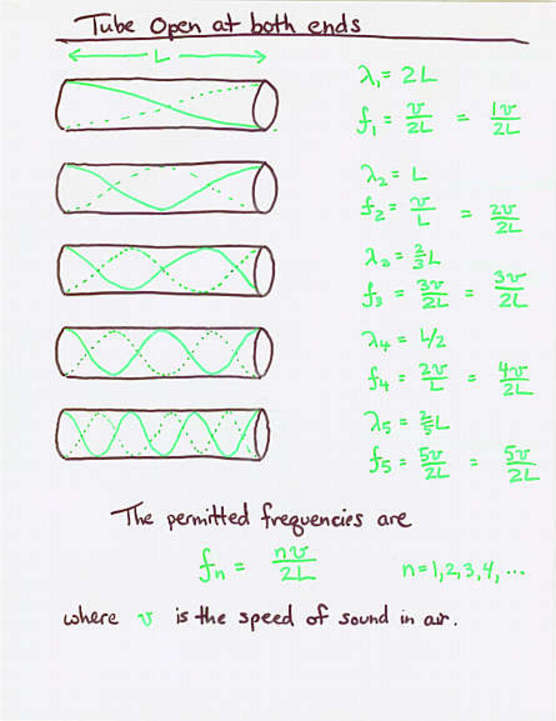 Tube Open at both ends
L
λ₁ = 2L
f₁ = v/2L = 1v/2L
λ₂ = L
f₂ = v/L = 2v/2L
λ₃ = 2/3 L
f₃ = 3v/2L = 3v/2L
λ₄ = L/2
f₄ = 2v/L = 4v/2L
λ₅ = 2/5 L
f₅ = 5v/2L = 5v/2L
The permitted frequencies are
fₙ = nv/2L n=1,2,3,4,...
where v is the speed of sound in air.